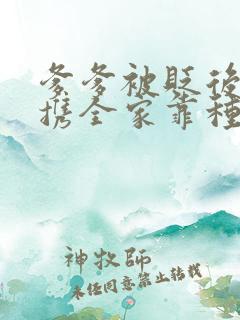 爹爹被贬後
携全家靠種
神牧師
未任同意禁止转载